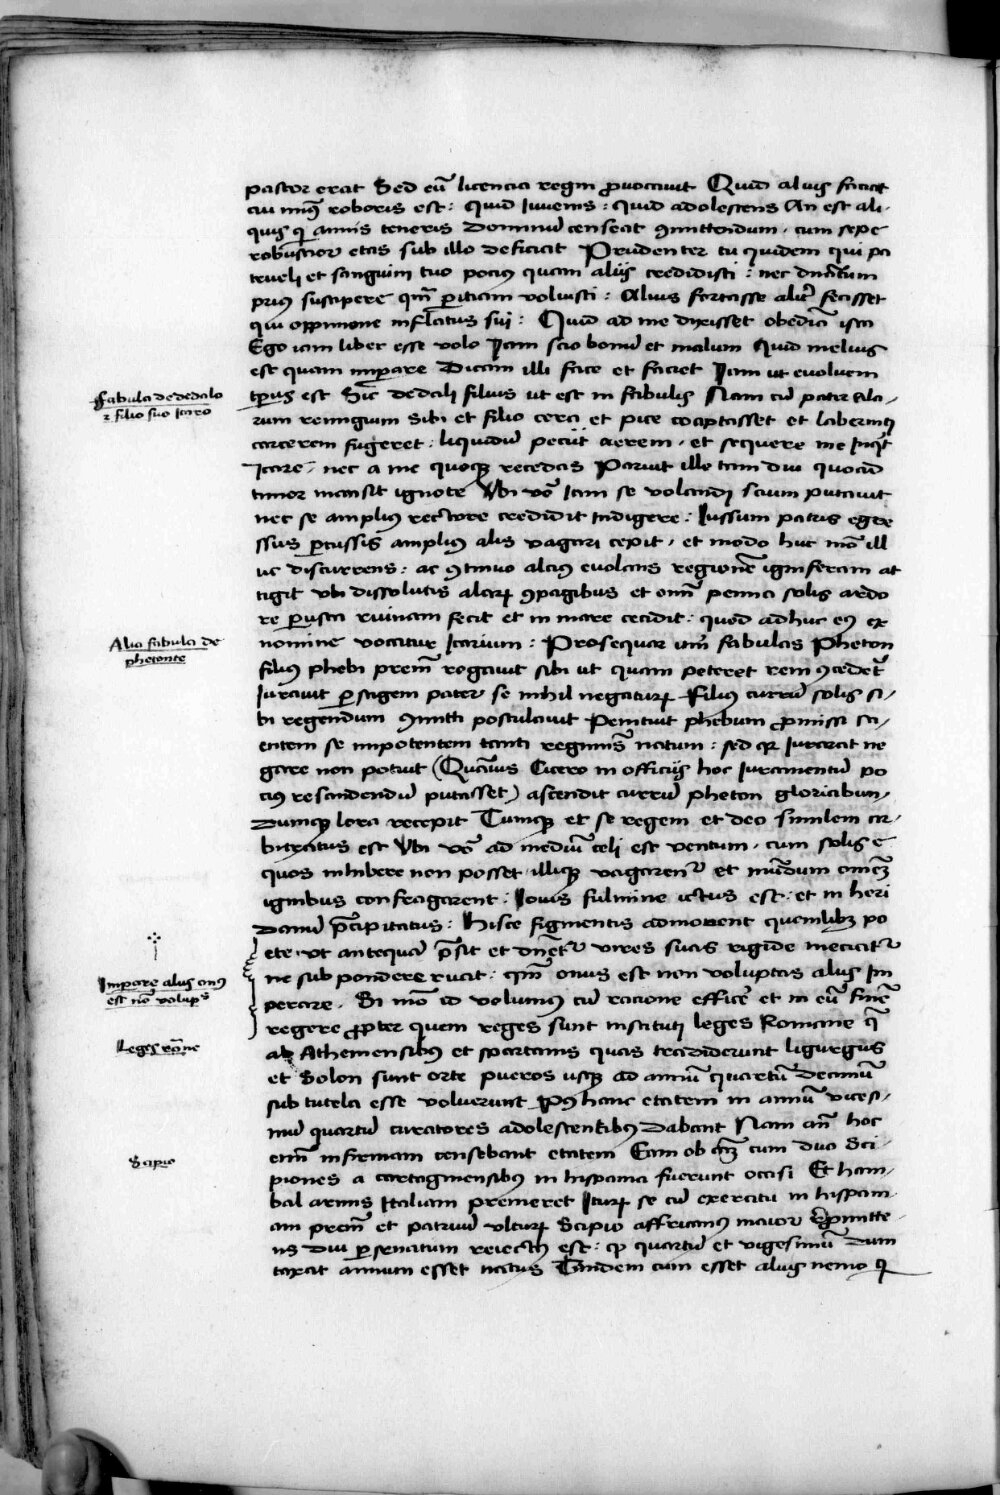 pastor erat Sed eū licencia regni ꝓuocauit Quid aluis faciet
cui minꝰ roboris est: Quid Iuuenis: Quid adolescens An est ali-
quis qͥ annis teneris dominiū censeat ꝯmittendum. cum sepe
robustior etas sub illo deficiat Prudenter tu quidem qui pa
trueli et sanguini tuo pociꝰ quam aliis credidisti: nec dnatum
priꝰ suscipere qm̄ peritiam voluisti: Aluis fortasse alitͬ fecisset
qui oppinione inflatus sui: Quid ad me dixisset obedi&#x0113;cia ista
Ego iam liber esse volo Iam scio bonū et malum Quid melius
est quam imperare Dicam illi face et faciet Iam ut euoluem
tp̄us est Sic dedali filius ut est in fabulis Nam cū pater ala-
rum remigium sibi et filio cera et pice coaptasset et laberintꝰ
carcerem fugeret: liquidū peciit aerem. et sequere me Inqͥt
Icare. nec a me quoqꝫ recedas Paruit ille tam diu quoad
timor mansit ignote Vbi vō Iam se volandi scium putauit
nec se ampliꝰ rectore credidit Indigere: Iussum patris egre
ssus percussis ampliꝰ alis vagari cepit. et modo huc mō ill
uc discurrens: ac ꝯtinuo alciꝰ euolans regionē igniferam at
tigit vbi dissolutis alaꝝ ꝯpagibus et omī penna solis ardo
re perusta ruinam fecit et in mare cecidit: quod adhuc eꝰ ex
nomine vocatur Icarium: Prosequar um̄ fabulas Pheton
filiꝰ phebi prem̄ rogauit sibi ut quam peteret rem ꝯcedet̄
Iurauit per stigem pater se nihil negaturꝝ Filiꝰ currū solis si-
bi regendum ꝯmitti postulauit Penituit phebum ꝓmissi sci-
entem se impotentem tanti regiminis natum: sed qꝛ Iurarat ne
gare non potuit (Quāuis Cicero in officiis hoc Iuramentū po
ciꝰ rescindendū putasset) ascendit currū pheton gloriabun-
dumqꝫ lora recepit Cumqꝫ et se regem et deo similem ar-
bitratus est Vbi vō ad mediū celi est ventum. cum solis e
quos inhibere non posset. illiqꝫ vagarent̄ et mūdum omnē
ignibus conflagarent: Iouis fulmine ictus est. et in heri
danū p̄cipitatus: Hisce figmentis admonent quemlibꝫ po
ete. vt antequā p̄sit et dnēt̄ vires suas rigide meciat̄
ne sub pondere ruat: qm̄ onus est non voluptas aliis Im
perare. Si mō id volumꝰ cū racione efficē et in eū finē
regere ꝓpter quem reges sunt instituti leges Romane q̄
ab Atheniensibꝰ et spartanis quas tradiderunt ligurgus
et Solon sunt orte pueros usqꝫ ad annū quartū decimū
sub tutela esse voluerunt Pꝰ hanc etatem in annū vicesi-
mū quartū curatores adolescentibꝰ dabant Nam an̄ hoc
enī infirmam censebant etatem Eam ob cām cum duo Sci-
piones a cartaginensibꝰ in hispania fuerunt occisi Et Hani-
bal armis Italiam premeret Iturꝝ se cū exercitu in hispani-
am prem̄ et patruū vlturꝝ Scipio affricanus maior Repmitte-
ns diu per senatum reiectꝰ est: qꝫ quartū et vigesimū dum
taxat annum esset natus Tandem cum esset aluis nemo qͥ
Fabula de dedalo
et filio suo Icaro
Alia fabula de
phetonte
Imperare aliis onꝰ
est nō volupᵗˢ
Leges rōne
Scipio